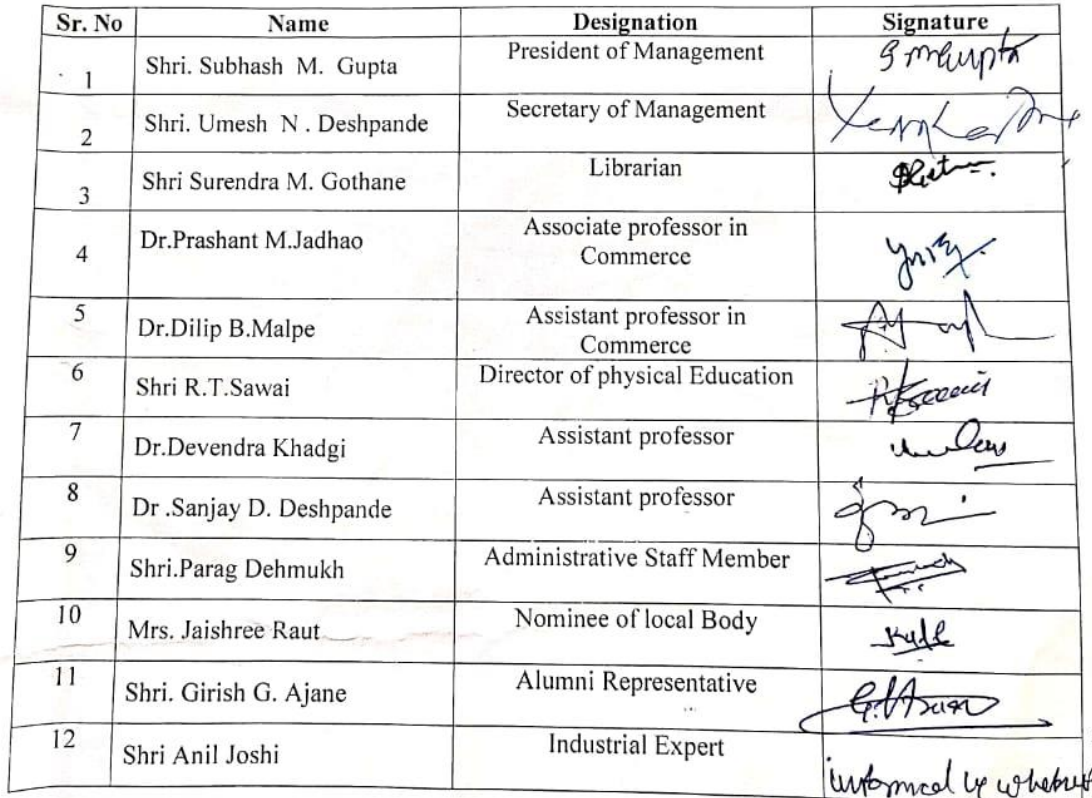 Sr. No Name Designation Signature
1 Shri. Subhash M. Gupta President of Management S mGupta
2 Shri. Umesh N . Deshpande Secretary of Management
3 Shri Surendra M. Gothane Librarian
4 Dr.Prashant M.Jadhao Associate professor in
Commerce
5 Dr.Dilip B.Malpe Assistant professor in
Commerce
6 Shri R.T.Sawai Director of physical Education
7 Dr.Devendra Khadgi Assistant professor
8 Dr .Sanjay D. Deshpande Assistant professor
9 Shri.Parag Dehmukh Administrative Staff Member
10 Mrs. Jaishree Raut Nominee of local Body
11 Shri. Girish G. Ajane Alumni Representative
12 Shri Anil Joshi Industrial Expert